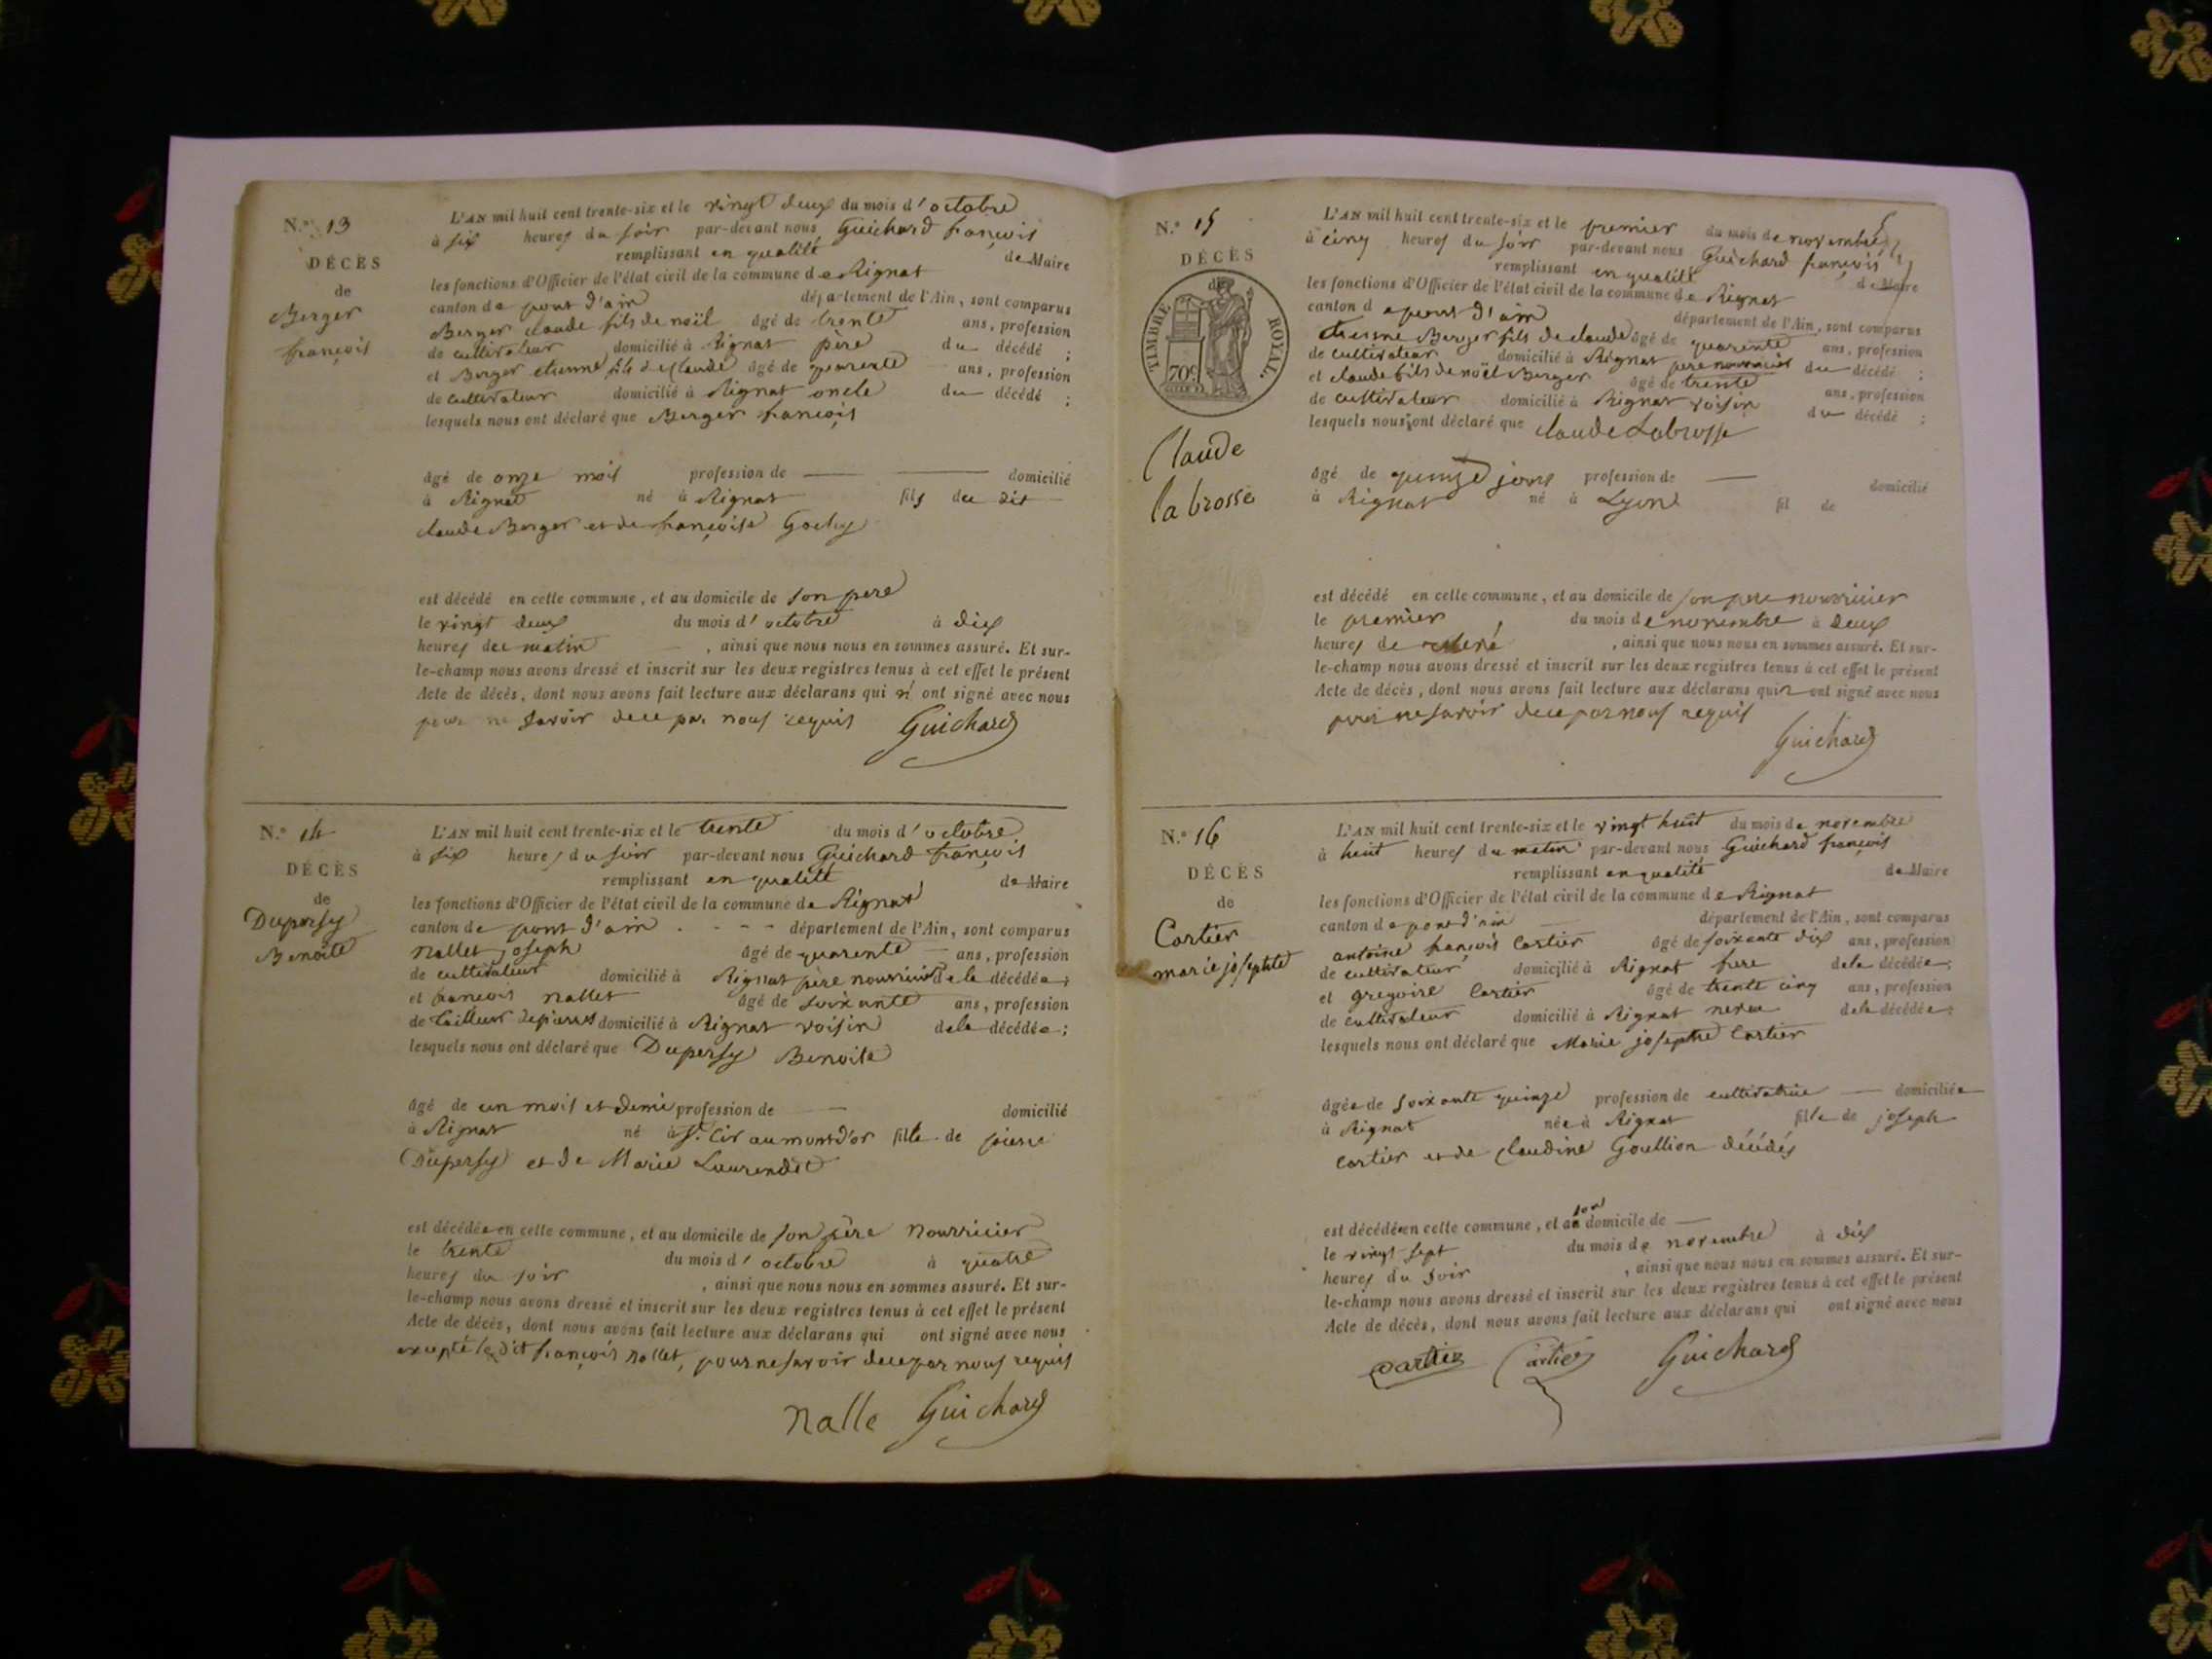 N.° 13
DÉCÈS
de
Berger
françois
L'AN mil huit cent trente-six et le vingt deux du mois d'octobre
à six heures du soir par-devant nous Guichard françois
remplissant en qualité de Maire
les fonctions d'Officier de l'état civil de la commune de Rignat
canton de pont d'ain département de l'Ain, sont comparus
Berger claude fils de noël âgé de trente ans, profession
de cultivateur domicilié à Rignat père du décédé ;
et Berger etienne fils de claude âgé de quarente ans, profession
de cultivateur domicilié à Rignat oncle du décédé ;
lesquels nous ont déclaré que Berger françois
âgé de onze mois profession de — domicilié
à Rignat né à Rignat fils du dit
claude Berger et de françoise Gochy
est décédé en cette commune, et au domicile de son pere
le vingt deux du mois d'octobre à dix
heures du matin , ainsi que nous nous en sommes assuré. Et sur-
le-champ nous avons dressé et inscrit sur les deux registres tenus à cet effet le présent
Acte de décès, dont nous avons fait lecture aux déclarans qui n'ont signé avec nous
pour ne savoir de ce par nous requis Guichard
N.° 14
DÉCÈS
de
Dupersy
Benoite
L'AN mil huit cent trente-six et le trente du mois d'octobre
à six heures du soir par-devant nous Guichard françois
remplissant en qualité de Maire
les fonctions d'Officier de l'état civil de la commune de Rignat
canton de pont d'ain - - - département de l'Ain, sont comparus
Nallet joseph âgé de quarente ans, profession
de cultivateur domicilié à Rignat père nourricier de la décédée ;
et françois nallet âgé de soixante ans, profession
de tailleur de pierres domicilié à Rignat voisin de la décédée ;
lesquels nous ont déclaré que Dupersy Benoite
âgé de un mois et demi profession de — domicilié
à Rignat né à St. Cir au mont d'or fille de pierre
Dupersy et de Marie Laurendet
est décédée en cette commune, et au domicile de son père Nourricier
le trente du mois d'octobre à quatre
heures du soir , ainsi que nous nous en sommes assuré. Et sur-
le-champ nous avons dressé et inscrit sur les deux registres tenus à cet effet le présent
Acte de décès, dont nous avons fait lecture aux déclarans qui ont signé avec nous
excepté le dit françois nallet, pour ne savoir de ce par nous requis
Nalle Guichard
N.° 15
DÉCÈS
de
TIMBRE ROYAL.
70c
Claude
labrosse
L'AN mil huit cent trente-six et le premier du mois de novembre
à cinq heures du soir par-devant nous Guichard françois
remplissant en qualité de Maire
les fonctions d'Officier de l'état civil de la commune de Rignat
canton de pont d'ain département de l'Ain, sont comparus
etienne Berger fils de claude âgé de quarente ans, profession
de cultivateur domicilié à Rignat pere nourricier du décédé ;
et claude fils de noël Berger âgé de trente ans, profession
de cultivateur domicilié à Rignat voisin du décédé ;
lesquels nous ont déclaré que claude Labrosse
âgé de quinze jours profession de — domicilié
à Rignat né à Lyon fil de
est décédé en cette commune, et au domicile de son pere nourricier
le premier du mois de novembre à deux
heures de , ainsi que nous nous en sommes assuré. Et sur-
le-champ nous avons dressé et inscrit sur les deux registres tenus à cet effet le présent
Acte de décès, dont nous avons fait lecture aux déclarans qui n'ont signé avec nous
pour ne savoir de ce par nous requis
Guichard
N.° 16
DÉCÈS
de
Cartier
marie josephte
L'AN mil huit cent trente-six et le vingt huit du mois de novembre
à huit heures du matin par-devant nous Guichard françois
remplissant en qualité de Maire
les fonctions d'Officier de l'état civil de la commune de Rignat
canton de pont d'ain département de l'Ain, sont comparus
antoine françois Cartier âgé de soixante dix ans, profession
de cultivateur domicilié à Rignat frere de la décédée ;
et gregoire Cartier âgé de trente cinq ans, profession
de cultivateur domicilié à Rignat neveu de la décédée ;
lesquels nous ont déclaré que Marie josephte Cartier
âgée de soixante quinze profession de cultivatrice — domiciliée
à Rignat née à Rignat fille de joseph
Cartier et de claudine Goullion décédés
est décédée en cette commune, et a son domicile de —
le vingt sept du mois de novembre à dix
heures du soir , ainsi que nous nous en sommes assuré. Et sur-
le-champ nous avons dressé et inscrit sur les deux registres tenus à cet effet le présent
Acte de décès, dont nous avons fait lecture aux déclarans qui ont signé avec nous
Cartier Cartier Guichard